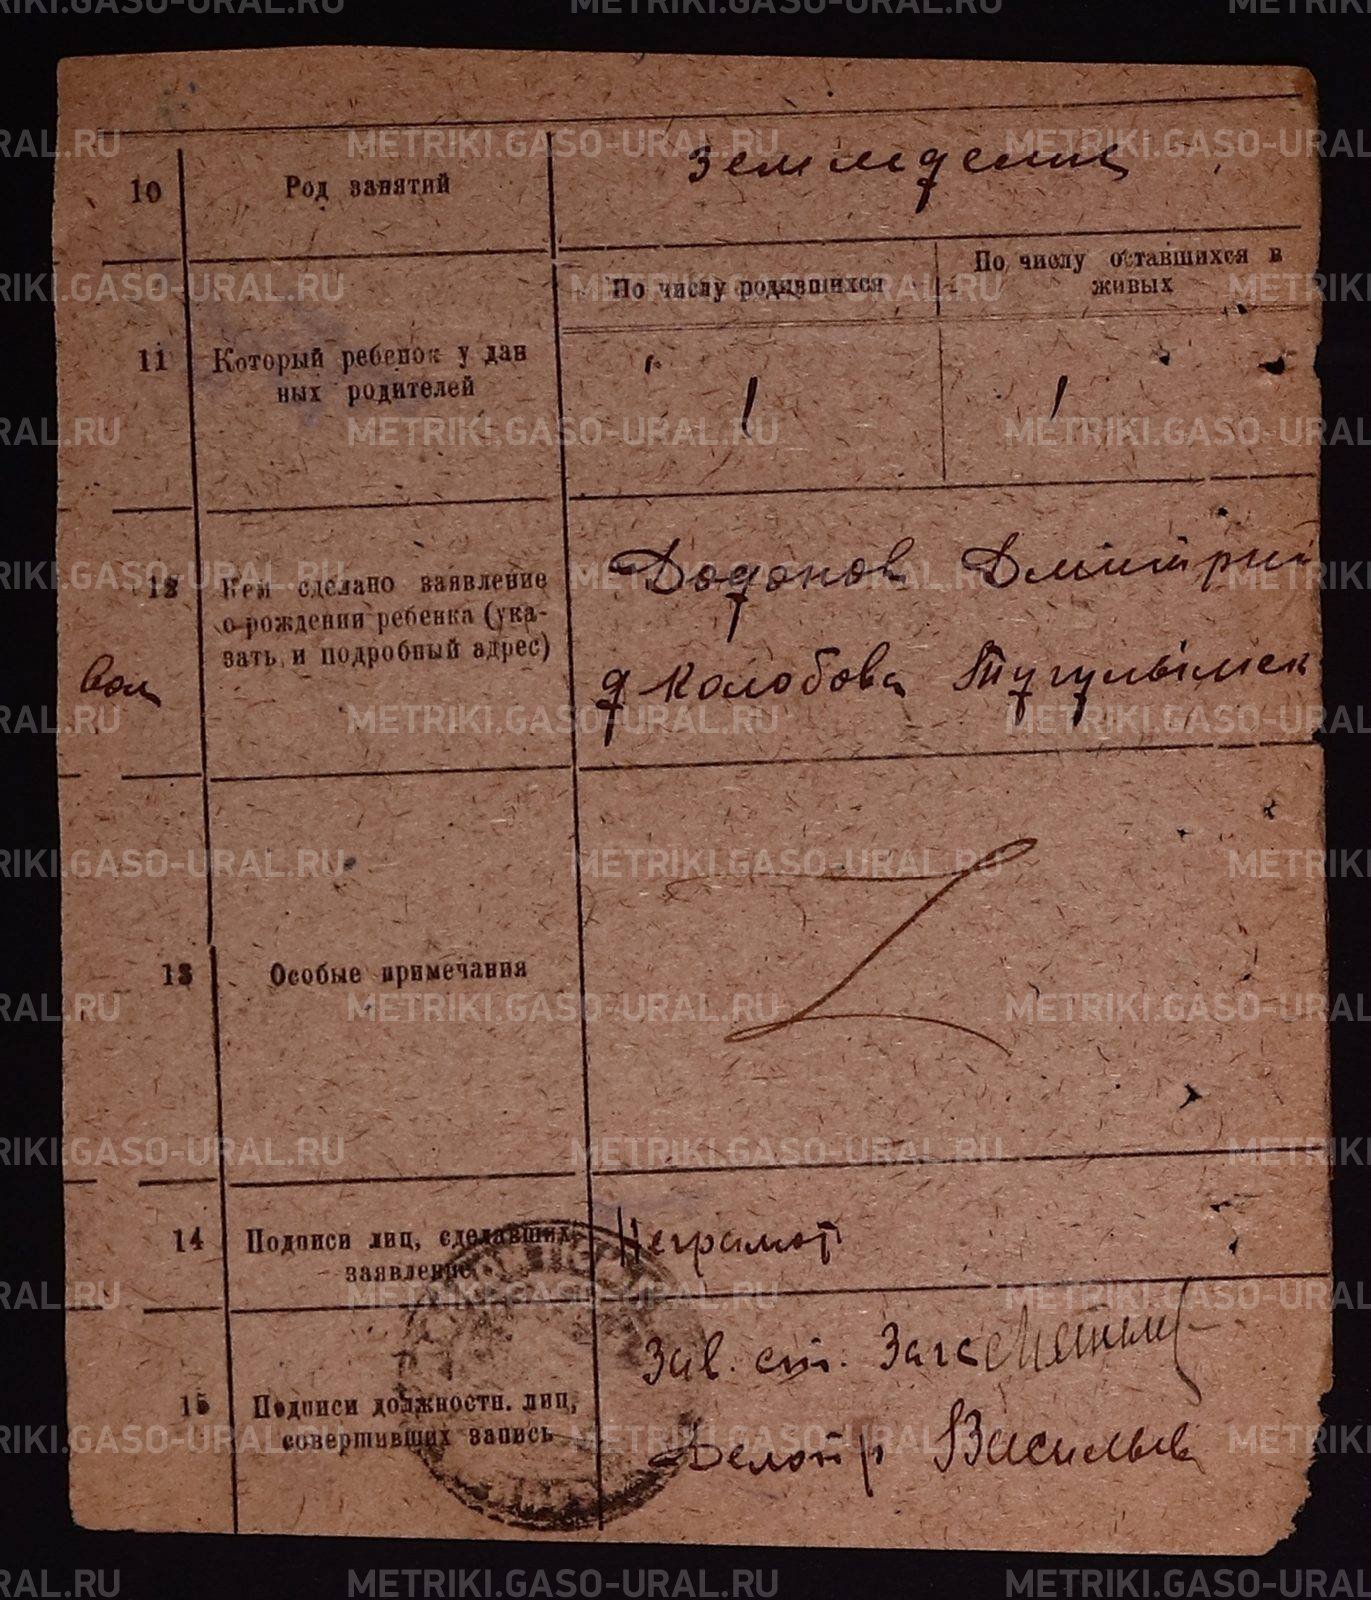 10 Род занятий земледелец
По числу родившихся
По числу оставшихся в
живых
11 Который ребенок у дан
ных родителей
1 1
12 Кем сделано заявление
о рождении ребенка (ука-
зать и подробный адрес)
Додонов Дмитрий
д Колобова Тугулымск
вол
13 Особые примечания
14 Подписи лиц, сделавших
заявление
Неграмот
Зав. ст. Загс
15 Подписи должностн. лиц,
совершивших запись
Делопр Васильева
METRIKI.GASO-URAL.RU